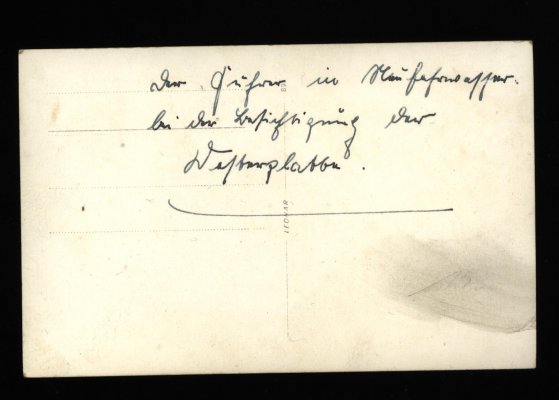 Der Führer in Neufahrwasser.
bei der Besichtigung der
Westerplatte.
LEONAR